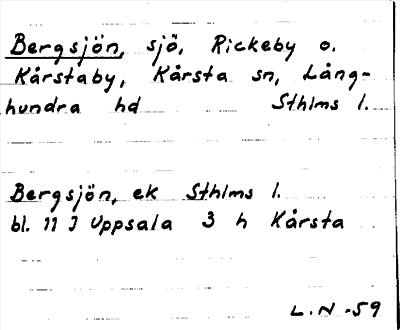 Bergsjön, sjö, Rickeby o.
Kårstaby, Kårsta sn, Lång-
hundra hd Sthlms l.
Bergsjön, ek Sthlms l.
bl. 11 J Uppsala 3 h Kårsta
L.N -59